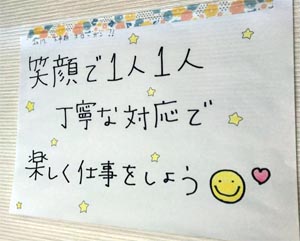 笑顔で1人1人
丁寧な対応で
楽しく仕事をしよう